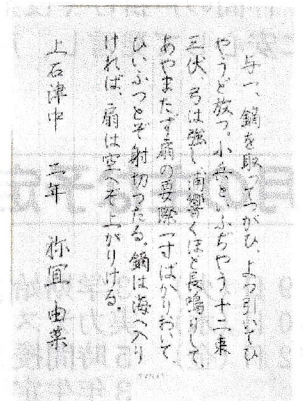 与一、鏑を取つてつがひ、よつ引いてひ
やうど放つ。小兵といふぢやう十二束
三伏、弓は強し、浦響くほど長鳴りして、
あやまたず扇の要際一寸ばかりおいて、
ひいふつとぞ射切つたる。鏑は海へ入り
ければ、扇は空へぞ上がりける。
上石津中 二年 祢宜 由菜